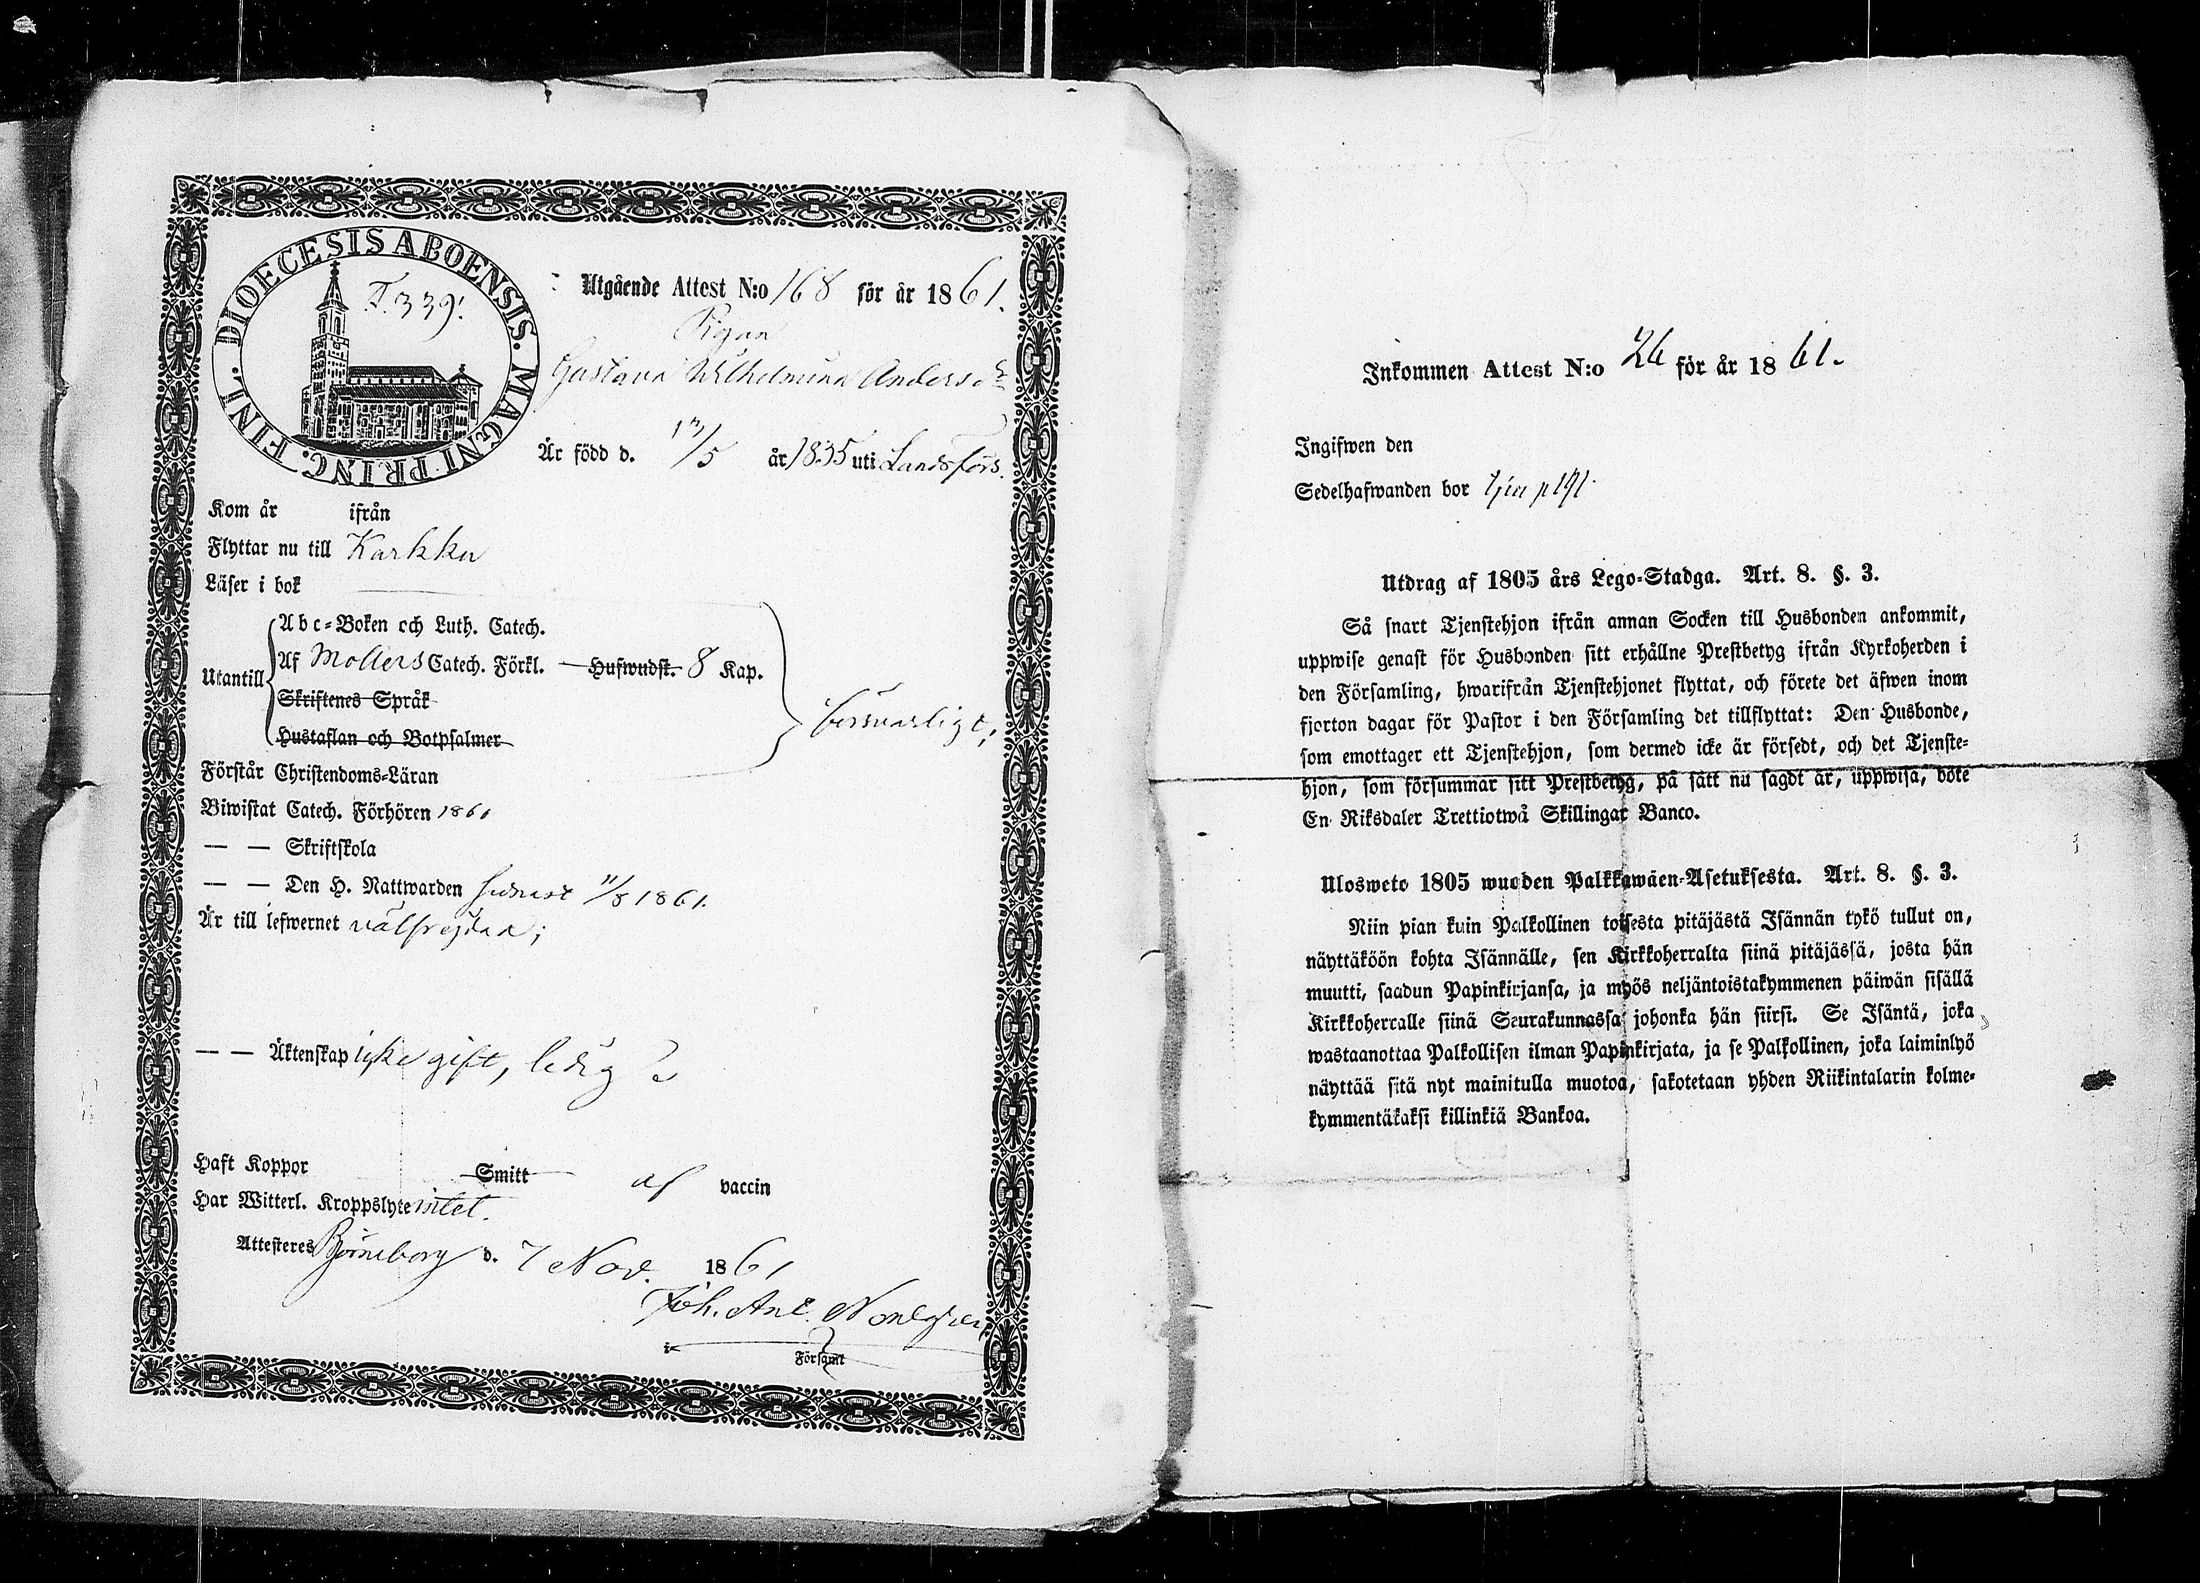 DIOECESIS ABOENSIS. MAGNI PRINC. FINL.
F. 339.
Utgående Attest N:o 168 för år 1861.
Pigan
Gustava Wilhelmina Anders
Är född d. /5 år 1835 uti Landsförs.
Kom år ifrån
Flyttar nu till Karkku
Läser i bok
Utantill
Abc-Boken och Luth. Catech.
Af Möllers Catech. Förkl. Hufwudst. 8 Kap.
Skriftenes Språk
Hustaflan och Botpsalmer
försvarligt;
Förstår Christendoms-Läran
Biwistat Catech. Förhören 1861
— — Skriftskola
— — Den H. Nattwarden senast 11/8 1861.
Är till lefwernet välfrejdad;
— — Äktenskap icke gift, ledig
Haft Koppor Smitt af vaccin
Har Witterl. Kroppslyte intet.
Attesteras Björneborg d. 7 Nov. 1861
Joh. Ant. Nordgren
i Församl
Inkommen Attest N:o 26 för år 1861.
Ingifwen den
Sedelhafwanden bor
Utdrag af 1805 års Lego-Stadga. Art. 8. §. 3.
Så snart Tjenstehjon ifrån annan Socken till Husbonden ankommit,
uppwise genast för Husbonden sitt erhållne Prestbetyg ifrån Kyrkoherden i
den Församling, hwarifrån Tjenstehjonet flyttat, och förete det äfwen inom
fjorton dagar för Pastor i den Församling det tillflyttat: Den Husbonde,
som emottager ett Tjenstehjon, som dermed icke är försedt, och det Tjenste-
hjon, som försummar sitt Prestbetyg, på sätt nu sagdt är, uppwisa, böte
En Riksdaler Trettiotwå Skillingar Banco.
Ulosweto 1805 wuoden Palkkawäen-Asetuksesta. Art. 8. §. 3.
Niin pian kuin Palkollinen toisesta pitäjästä Isännän tykö tullut on,
näyttäköön kohta Isännälle, sen Kirkkoherralta siinä pitäjässä, josta hän
muutti, saadun Papinkirjansa, ja myös neljäntoistakymmenen päiwän sisällä
Kirkkoherralle siinä Seurakunnassa johonka hän siirsi. Se Isäntä, joka
wastaanottaa Palkollisen ilman Papinkirjata, ja se Palkollinen, joka laiminlyö
näyttää sitä nyt mainitulla muotoa, sakotetaan yhden Riikintalarin kolme-
kymmentäkaksi killinkiä Bankoa.